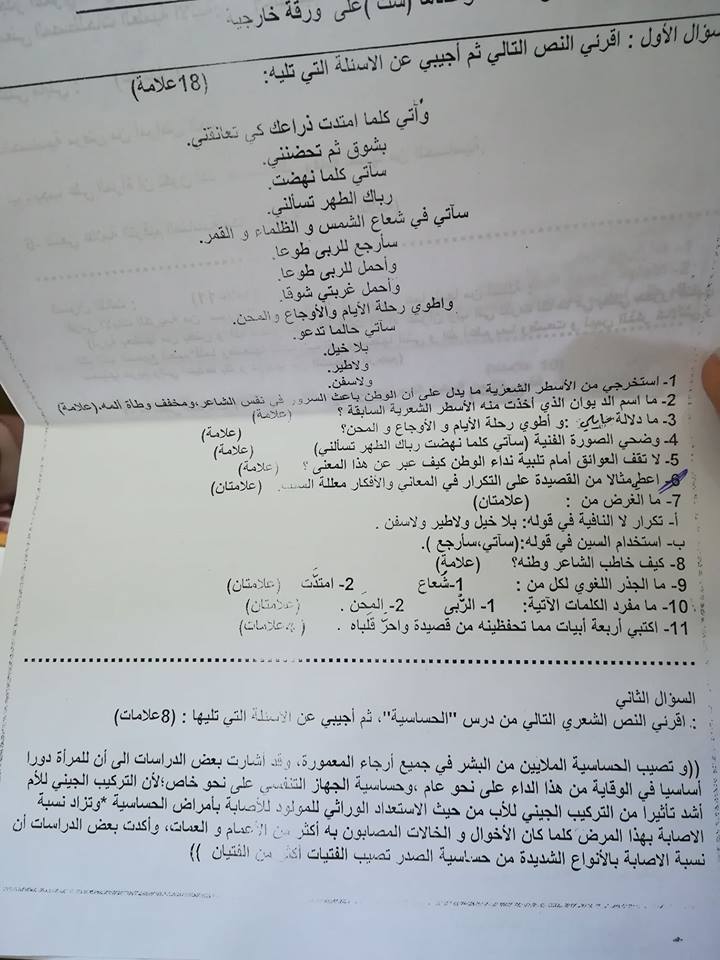 (ست) على ورقة خارجية.
سؤال الأول : اقرئي النص التالي ثم أجيبي عن الاسئلة التي تليه: (18علامة)
وآتي كلما امتدت ذراعك كي تعانقني.
بشوق ثم تحضنني.
سآتي كلما نهضت.
رباك الطهر تسألني.
سآتي في شعاع الشمس و الظلماء و القمر.
سأرجع للربى طوعا.
وأحمل للربى طوعا.
وأحمل غربتي شوقا.
واطوي رحلة الأيام والأوجاع والمحن.
سآتي حالما تدعو.
بلا خيل.
ولاطير.
ولاسفن.
1- استخرجي من الأسطر الشعرية ما يدل على أن الوطن باعث السرور في نفس الشاعر،ومخفف وطأة ألمه.(علامة)
2- ما اسم الديوان الذي أخذت منه الأسطر الشعرية السابقة ؟ (علامة)
3- ما دلالة :و أطوي رحلة الأيام و الأوجاع و المحن؟ (علامة)
4- وضحي الصورة الفنية (سآتي كلما نهضت رباك الطهر تسألني) (علامة)
5- لا تقف العوائق أمام تلبية نداء الوطن كيف عبر عن هذا المعنى ؟ (علامة)
6- اعط مثالا من القصيدة على التكرار في المعاني والأفكار معللة السبب. (علامتان)
7- ما الغرض من : (علامتان)
أ- تكرار لا النافية في قوله: بلا خيل ولاطير ولاسفن .
ب- استخدام السين في قوله:(سآتي،سأرجع ).
8- كيف خاطب الشاعر وطنه؟ (علامة)
9- ما الجذر اللغوي لكل من : 1-شُعاع 2- امتدَّت (علامتان)
10- ما مفرد الكلمات الآتية: 1- الرُّبى 2- المِحَن . (علامتان)
11- اكتبي أربعة أبيات مما تحفظينه من قصيدة واحرَّ قلباه . علامات)
السؤال الثاني
: اقرئي النص الشعري التالي من درس "الحساسية"، ثم أجيبي عن الاسئلة التي تليها : (8علامات)
((و تصيب الحساسية الملايين من البشر في جميع أرجاء المعمورة، وقد أشارت بعض الدراسات الى أن للمرأة دورا
أساسيا في الوقاية من هذا الداء على نحو عام ،وحساسية الجهاز التنفسي على نحو خاص؛لأن التركيب الجيني للأم
أشد تأثيرا من التركيب الجيني للأب من حيث الاستعداد الوراثي للمولود للأصابة بأمراض الحساسية *وتزاد نسبة
الاصابة بهذا المرض كلما كان الأخوال و الخالات المصابون به أكثر من الأعمام و العمات، وأكدت بعض الدراسات أن
نسبة الاصابة بالأنواع الشديدة من حساسية الصدر تصيب الفتيات أكثر من الفتيان ))